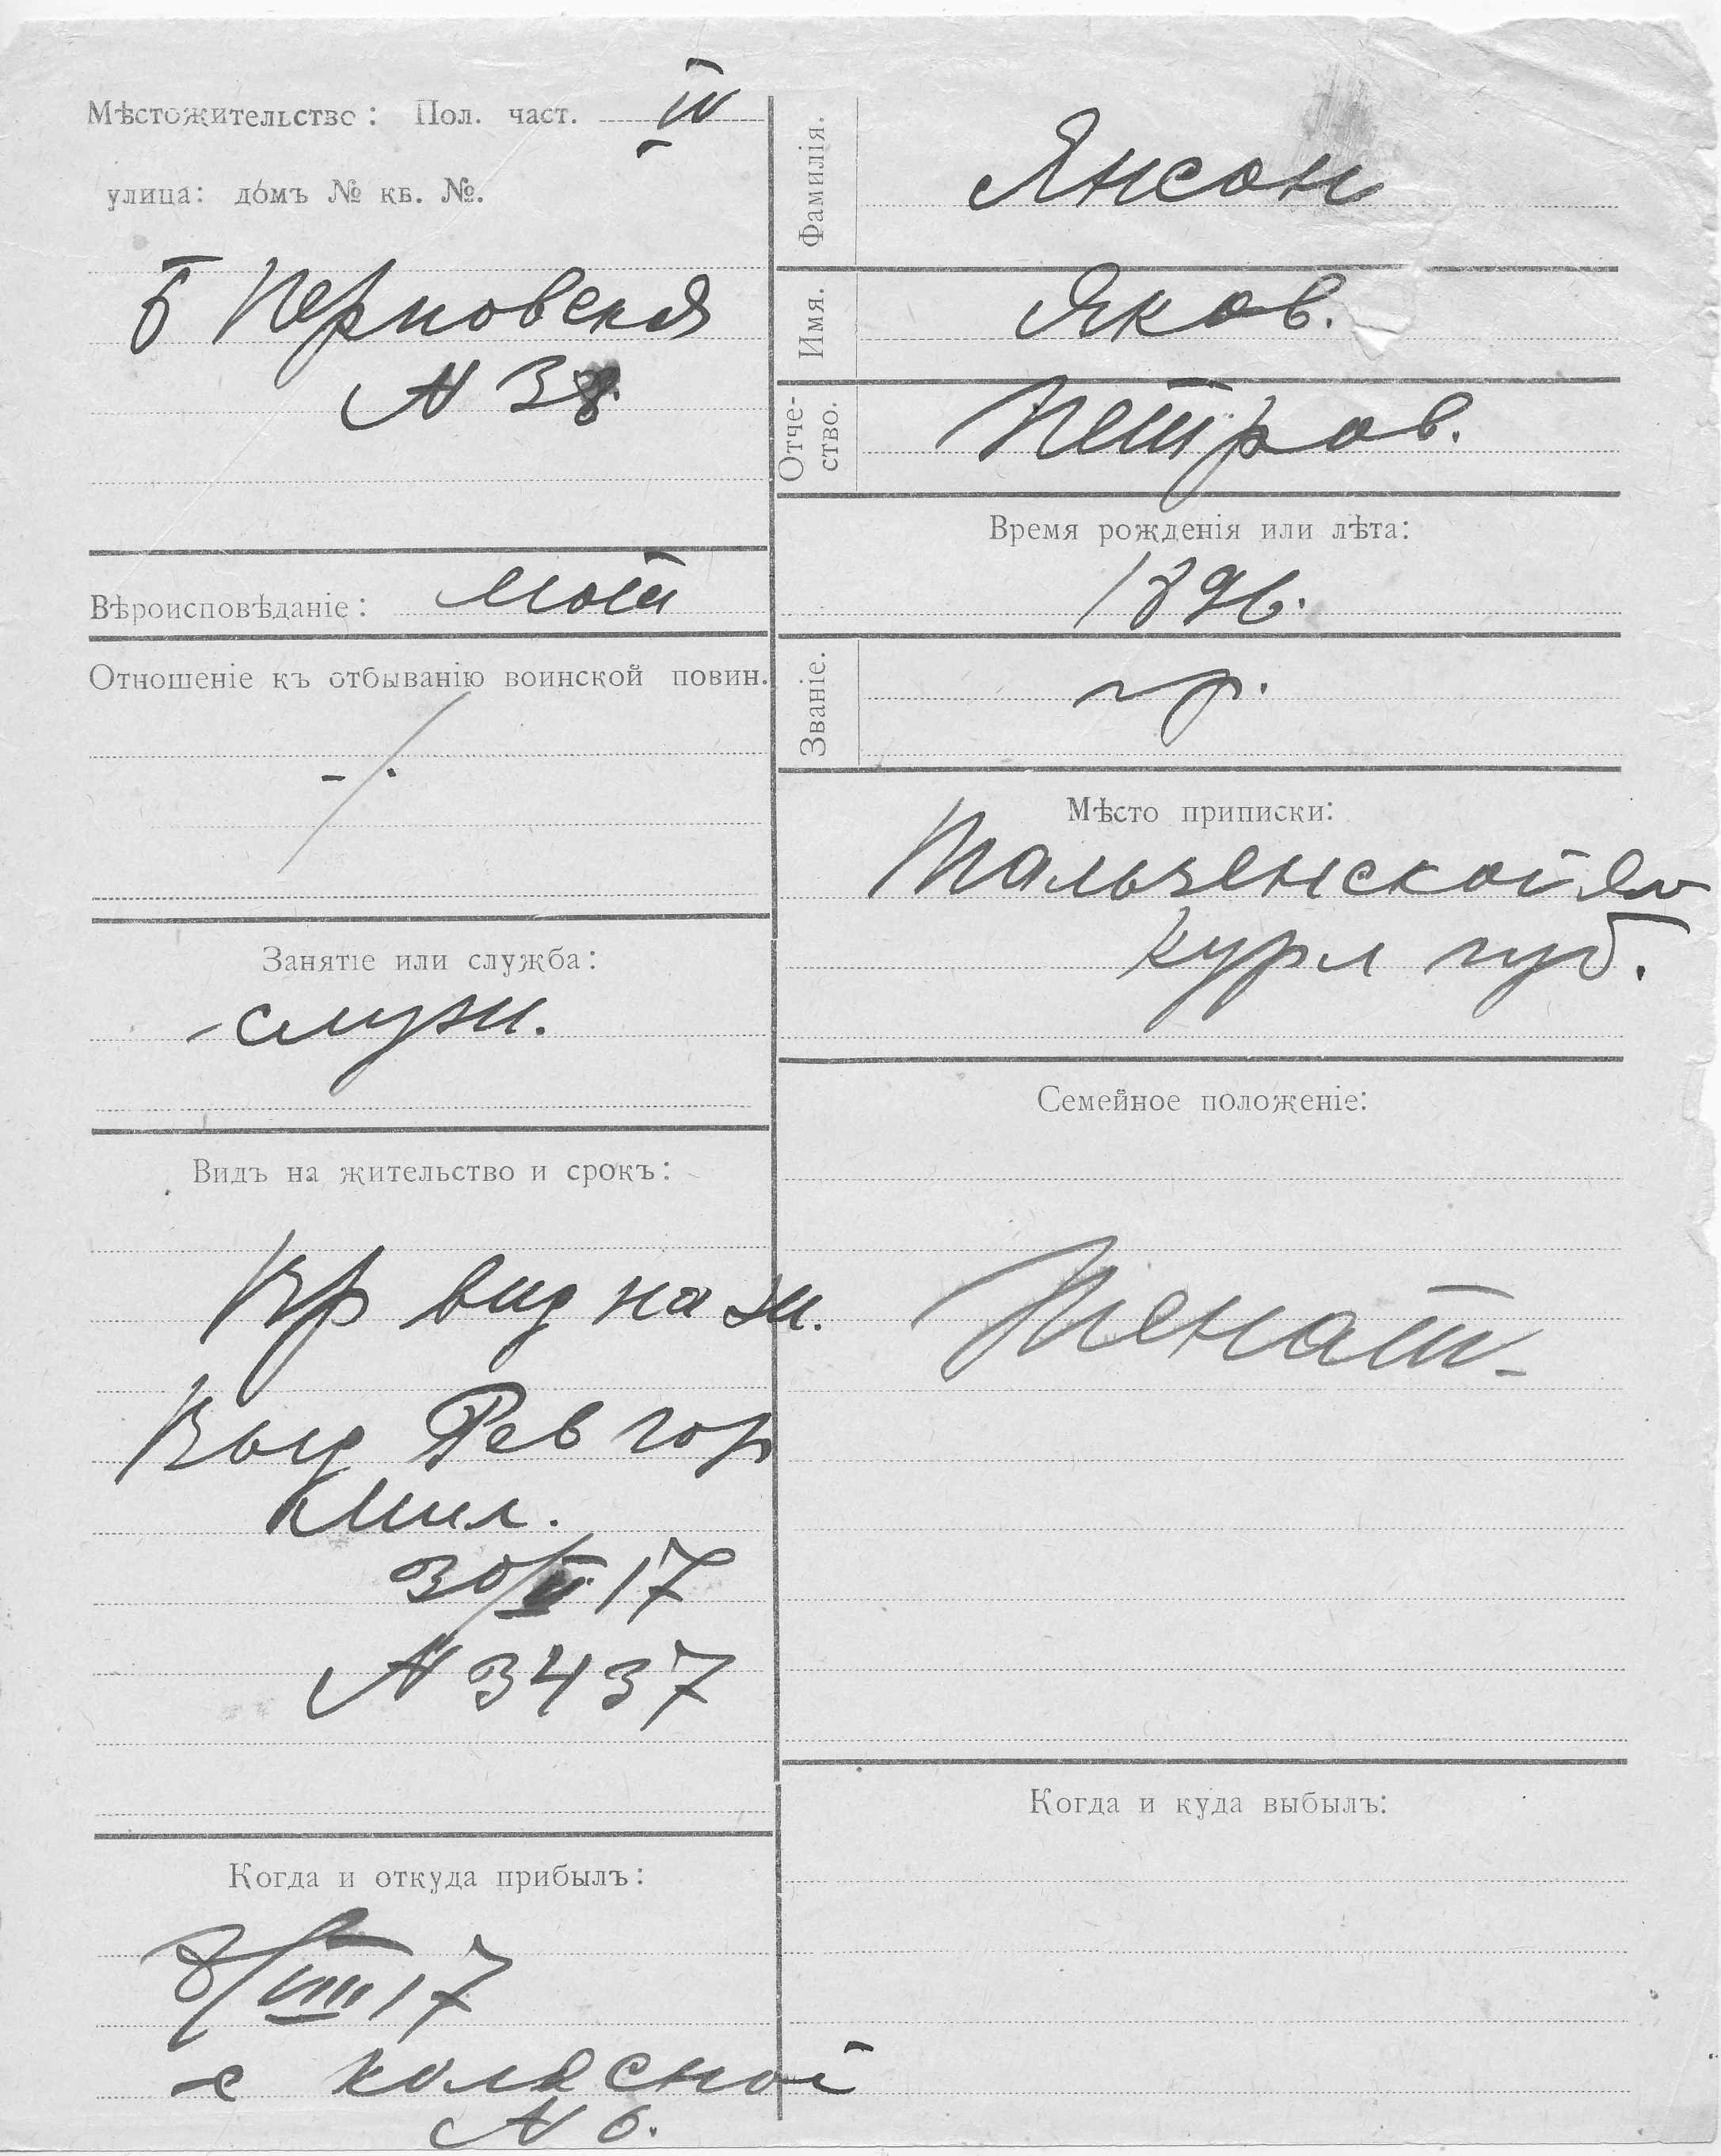 Мѣстожительство: Пол. част. IV
улица: домъ № кв. №.
Б Перновская
N 38
Вѣроисповѣданіе: лют
Отношеніе къ отбыванію воинской повин.
Занятіе или служба:
служ.
Видъ на жительство и срокъ:
Вр вид на ж.
Выд Рев гор
Мил.
30/ 17
N 3437
Когда и откуда прибылъ:
8/VIII 17
с Колясной
N 6.
Фамилія.
Янсон
Имя.
Яков.
Отче-
ство.
Петров.
Время рожденія или лѣта:
1896.
Званіе.
гр.
Мѣсто приписки:
Тальзенской
Курл губ.
Семейное положеніе:
Женат
Когда и куда выбылъ: